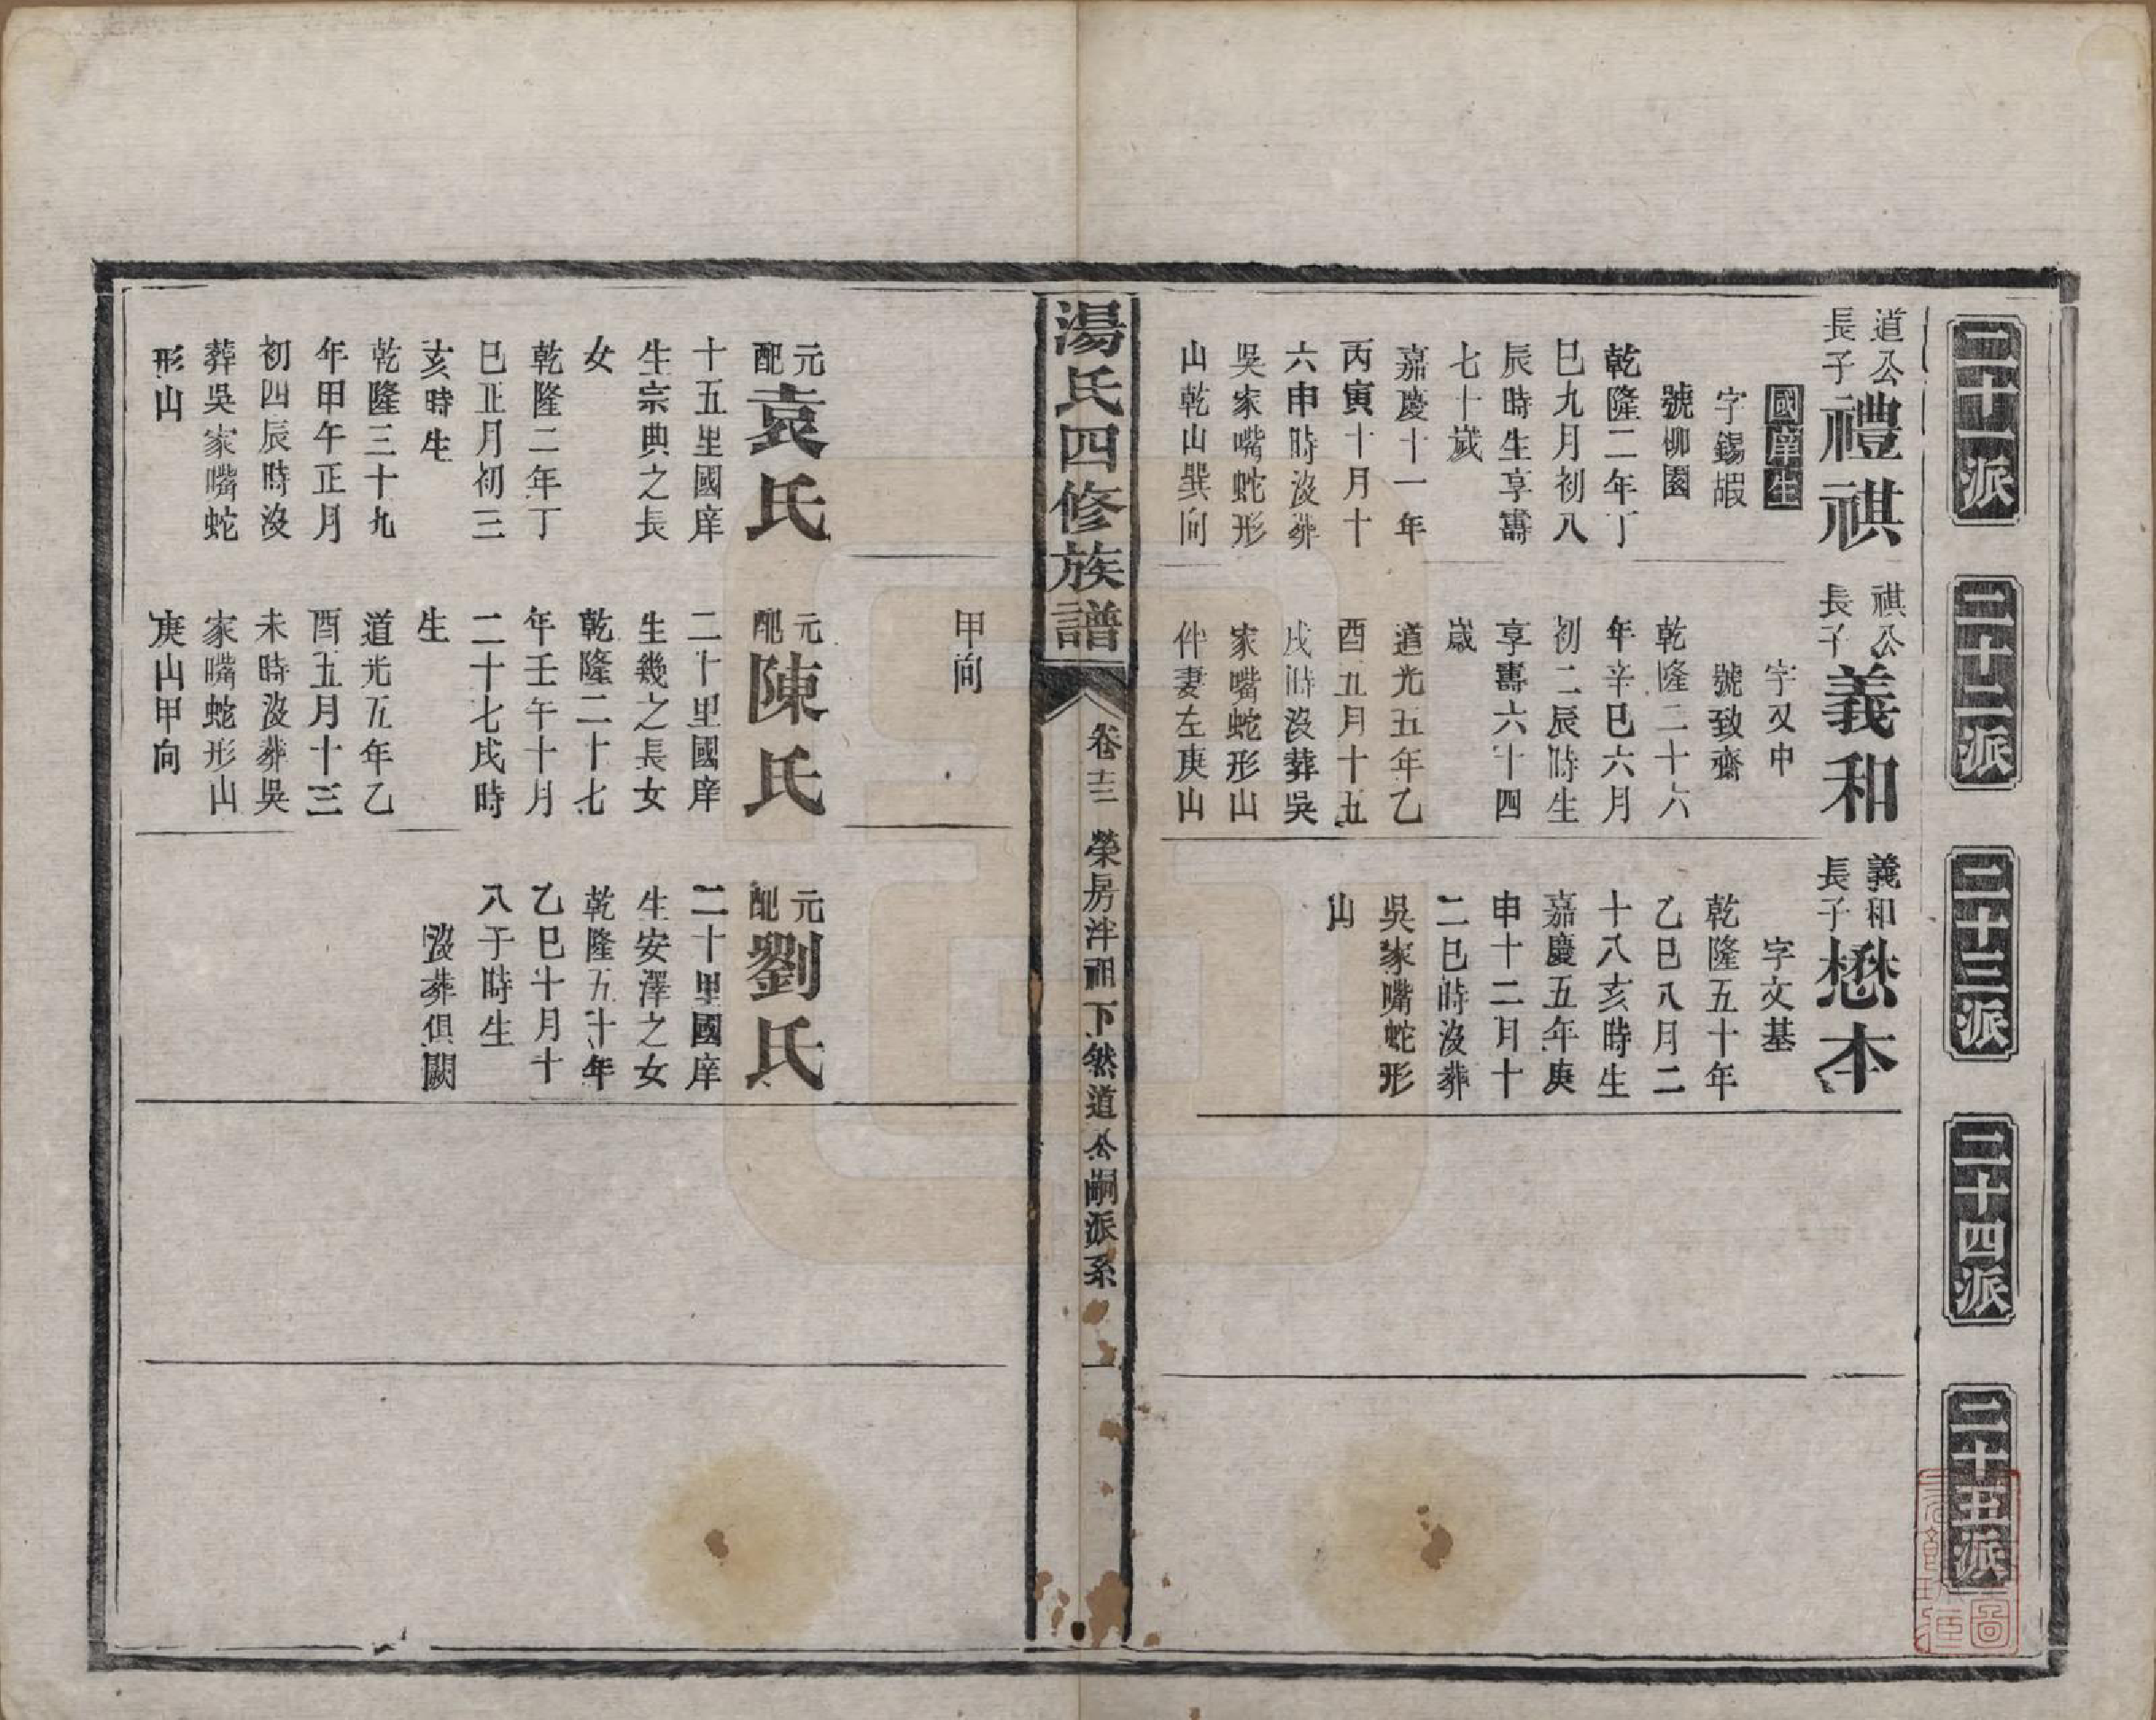 二十一派
二十二派
二十三派
二十四派
二十五派
道公
長子
禮祺
國庠生
字錫嘏
號柳園
乾隆二年丁
巳九月初八
辰時生享壽
七十歲
嘉慶十一年
丙寅十月十
六申時沒葬
吳家嘴蛇形
山乾山巽向
祺公
長子
義和
字又申
號致齋
乾隆二十六
年辛巳六月
初二辰時生
享壽六十四
歲
道光五年乙
酉五月十五
戌時沒葬吳
家嘴蛇形山
伴妻左庚山
義和
長子
懋本
字文基
乾隆五十年
乙巳八月二
十八亥時生
嘉慶五年庚
申十二月十
二巳時沒葬
吳家嘴蛇形
山
湯氏四修族譜
卷三 榮房泮祖下然道公嗣派系
一
元
配
袁氏
十五里國庠
生宗典之長
女
乾隆二年丁
巳正月初三
亥時生
乾隆三十九
年甲午正月
初四辰時沒
葬吳家嘴蛇
形山
甲向
元
配
陳氏
二十里國庠
生幾之長女
乾隆二十七
年壬午十月
二十七戌時
生
道光五年乙
酉五月十三
未時沒葬吳
家嘴蛇形山
庚山甲向
元
配
劉氏
二十里國庠
生安澤之女
乾隆五十年
乙巳十月十
八子時生
沒葬俱闕